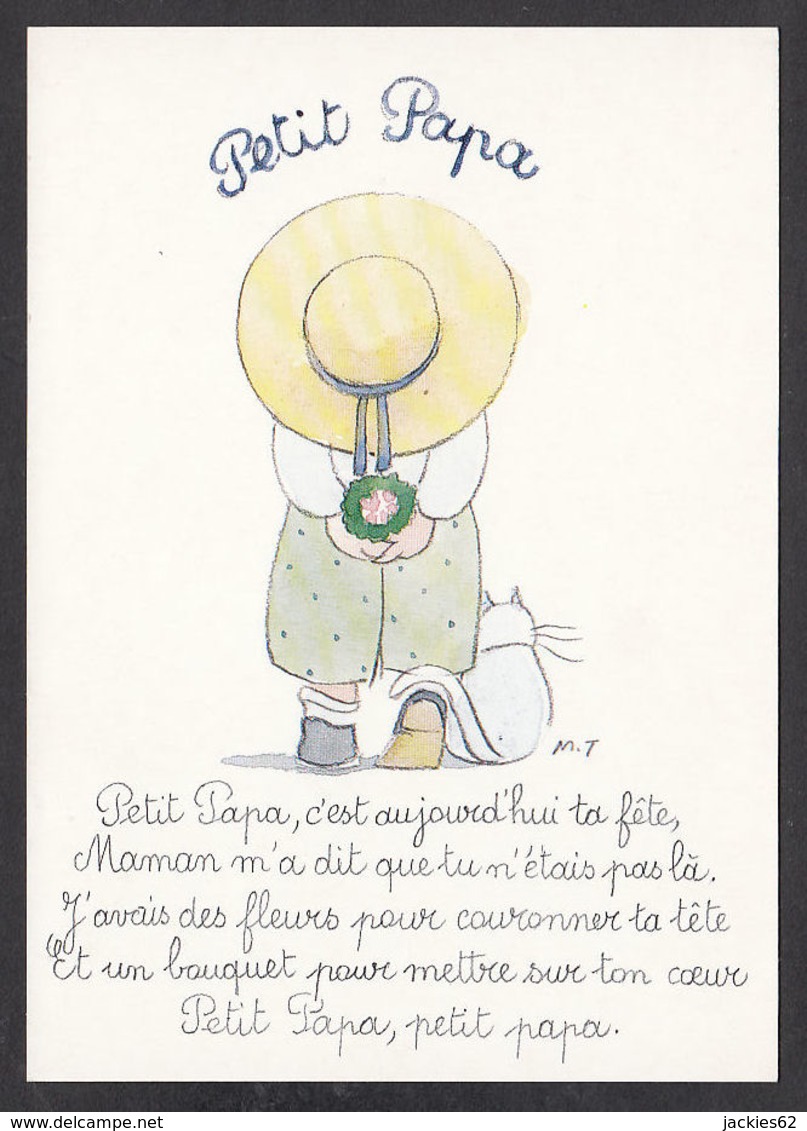 Petit Papa
M.T
Petit Papa, c'est aujourd'hui ta fête,
Maman m'a dit que tu n'étais pas là.
J'avais des fleurs pour couronner ta tête
Et un bouquet pour mettre sur ton cœur
Petit Papa, petit papa.
delcampe.net
jackies62